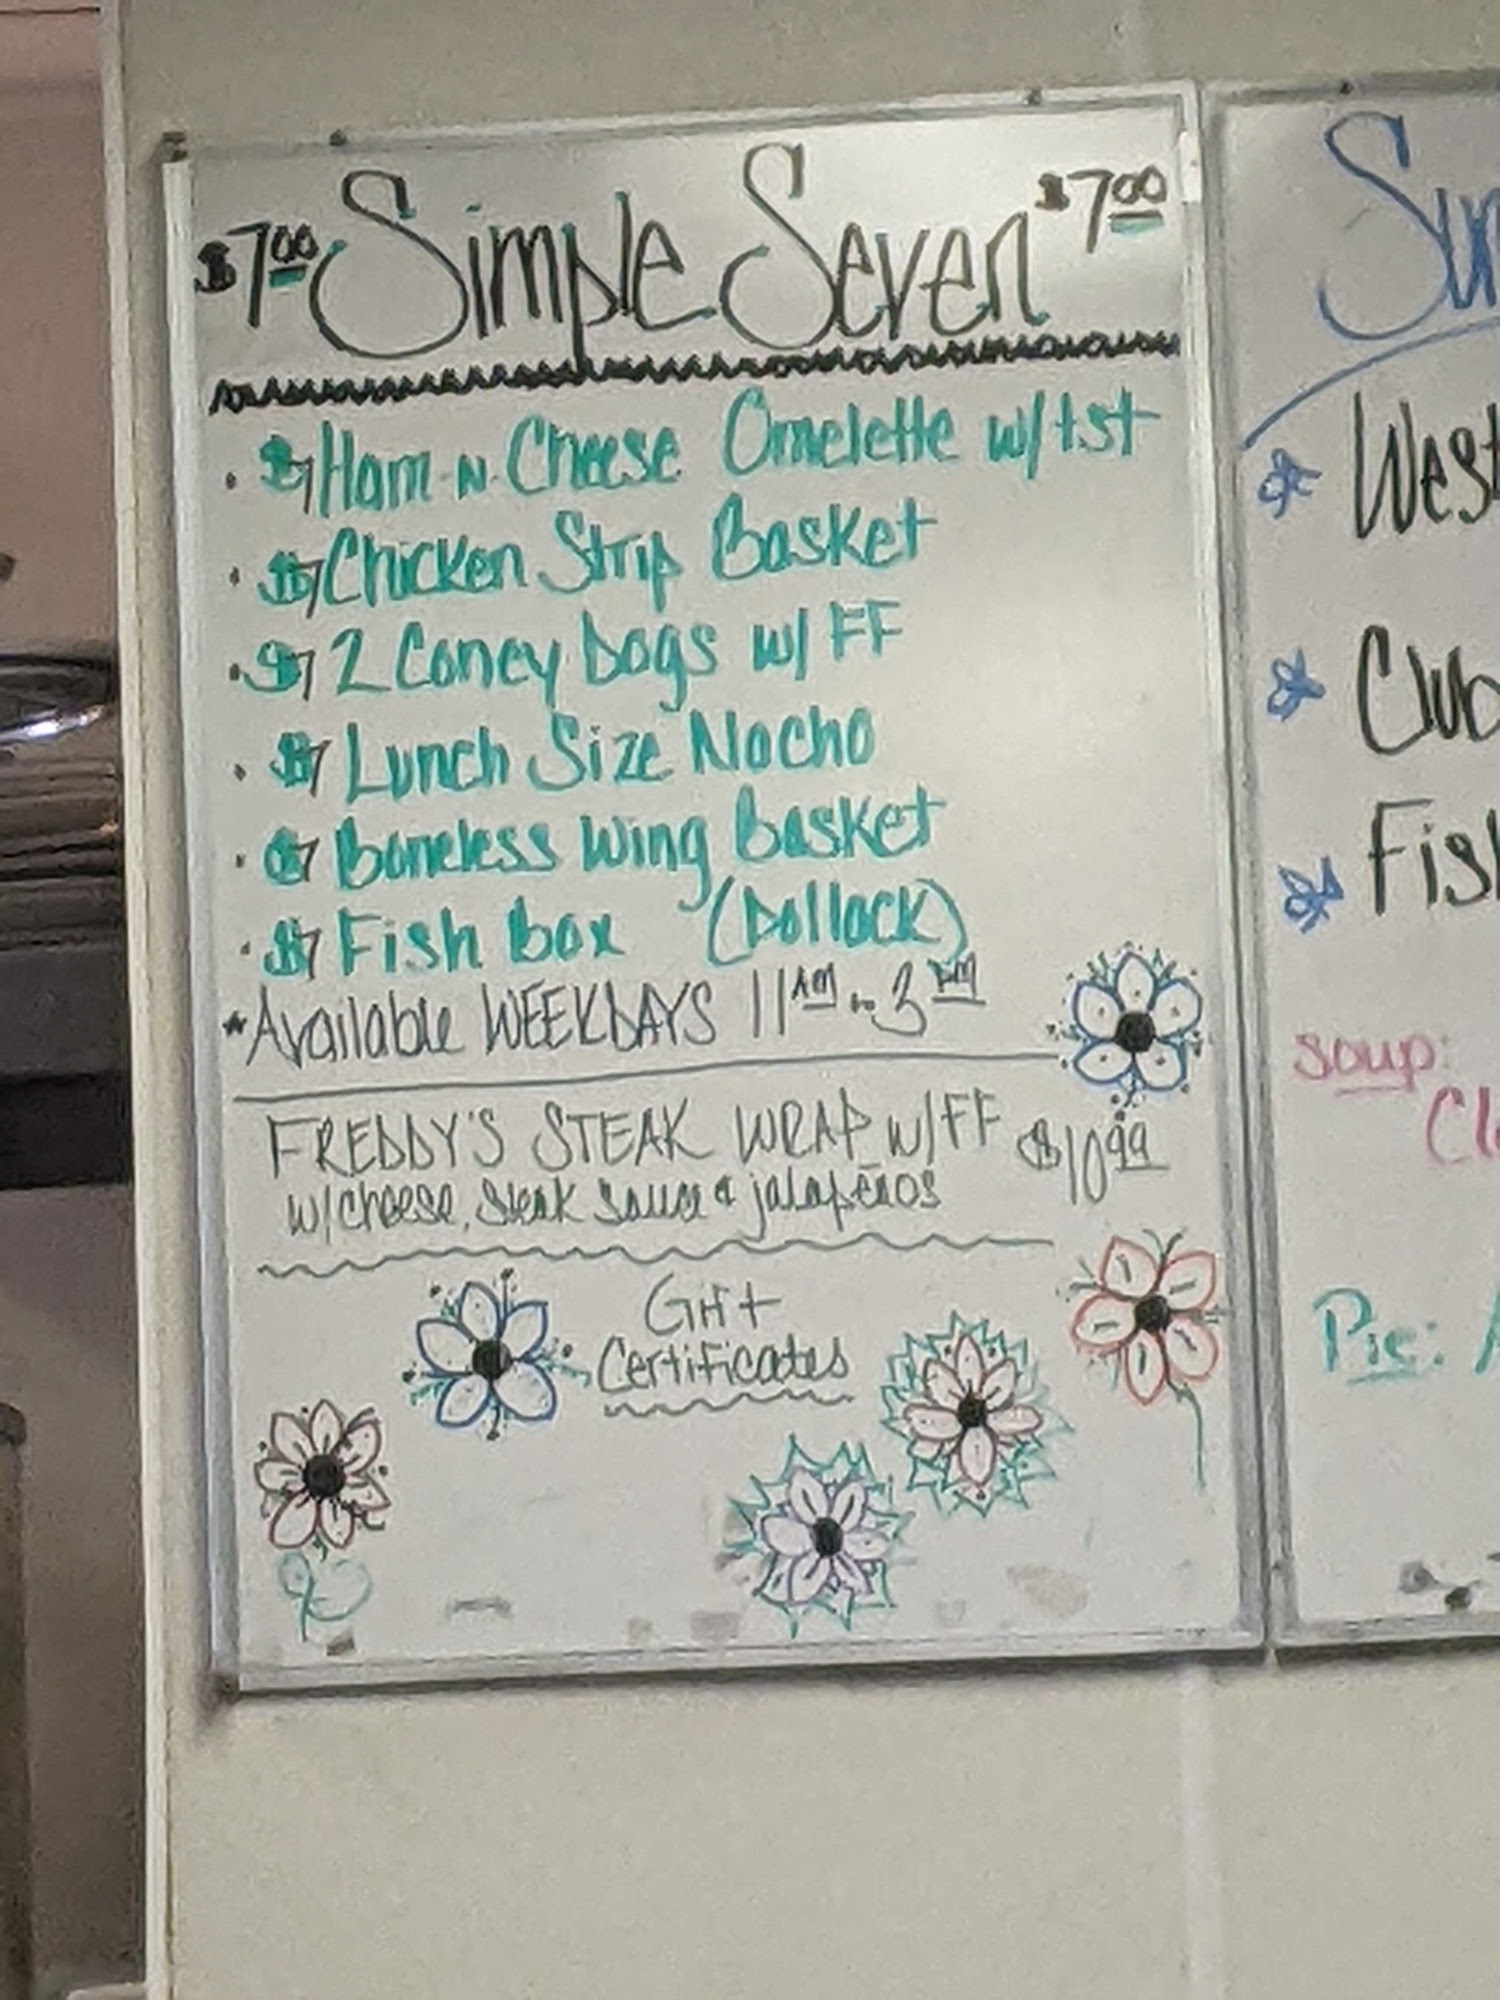 $7.00 Simple Seven $7.00
· $7 Ham-N-Cheese Omelette w/tst
· $7 Chicken Strip Basket
· $7 2 Coney Dogs w/ FF
· $7 Lunch Size Nacho
· $7 Boneless Wing Basket
· $7 Fish box (Pollack)
*Available WEEKDAYS 11AM - 3PM
FREDDY'S STEAK WRAP w/FF $10.99
w/cheese, steak sauce & jalapeños
Gift
Certificates
Sun
West
Club
Fish
Soup:
Cl
Pie: